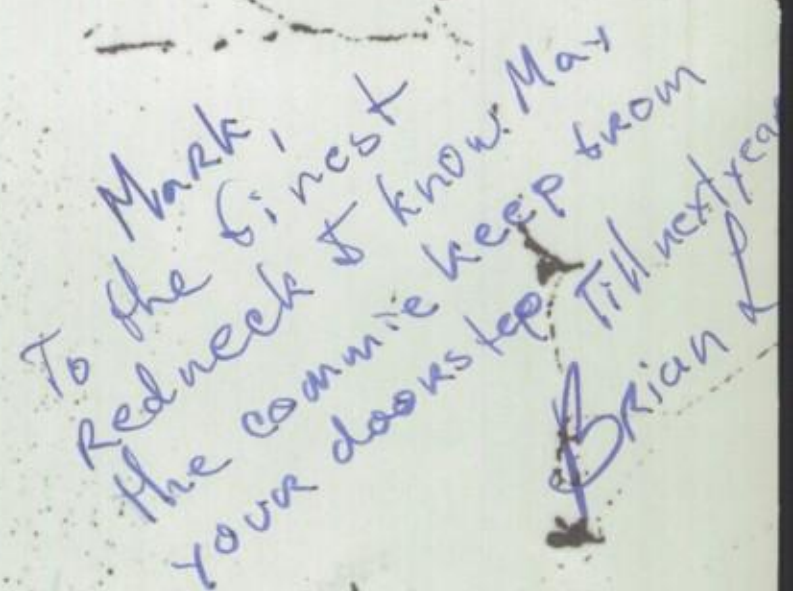 Mark,
To the finest
Redneck I know. May
the commie keep from
your doorstep. Till next year
Brian L